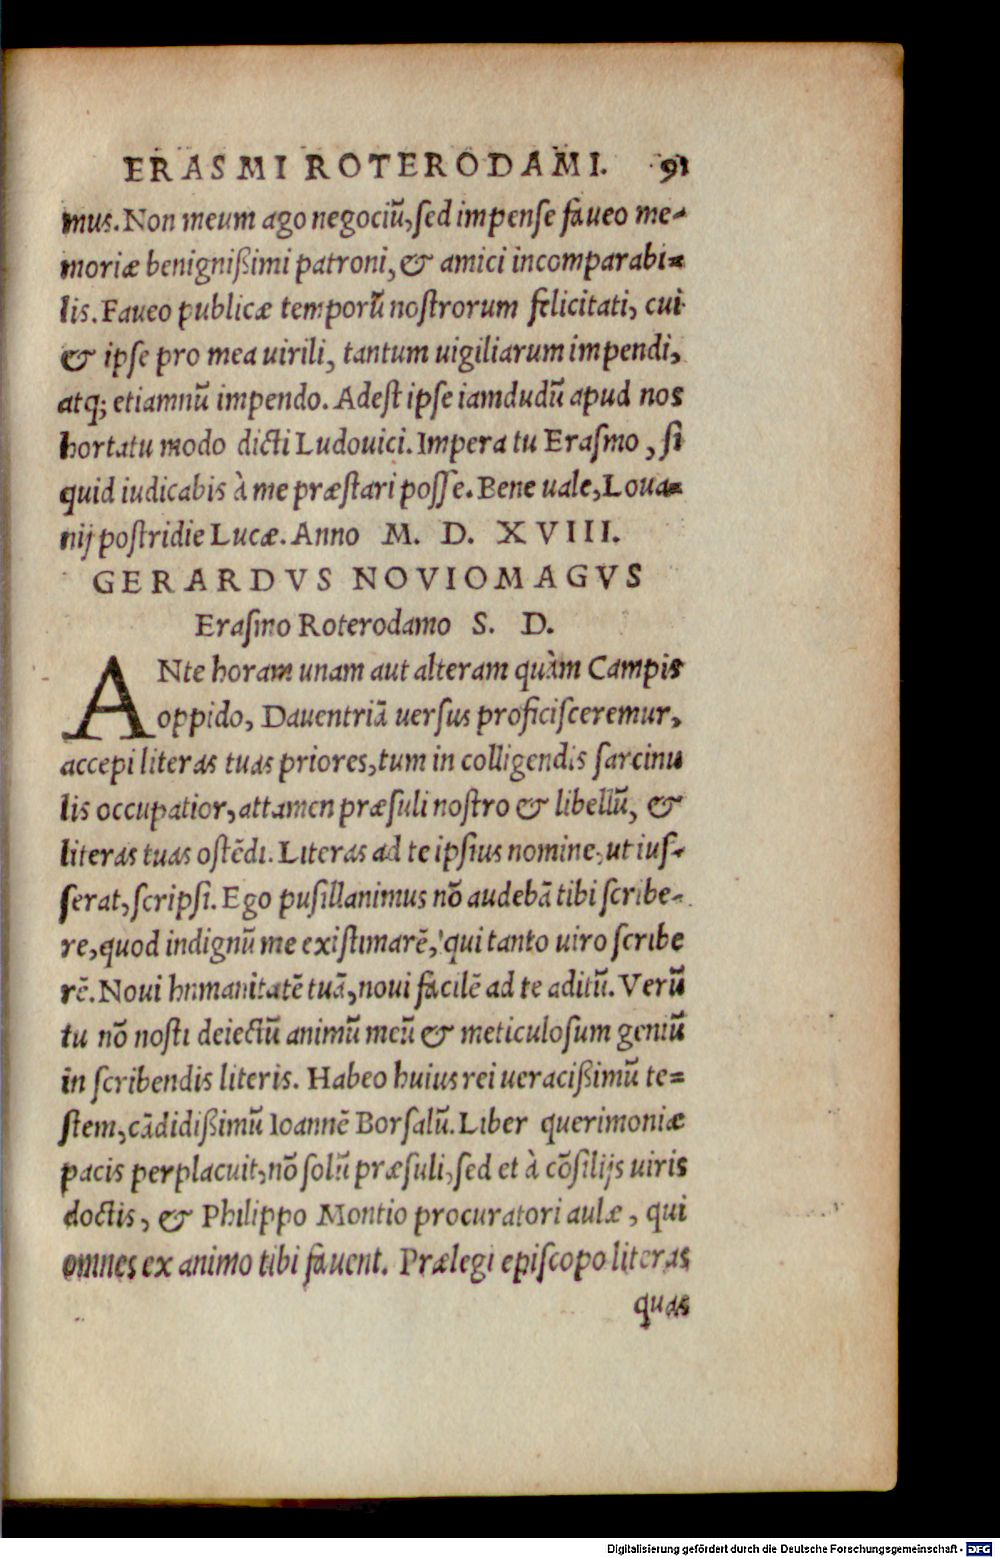 ERASMI ROTERODAMI. 91
mus. Non meum ago negociũ, sed impense faveo me-
moriæ benignißimi patroni, & amici incomparabi=
lis. Faveo publicæ temporũ nostrorum felicitati, cui
& ipse pro mea uirili, tantum uigiliarum impendi,
atq; etiamnũ impendo. Adest ipse iamdudũ apud nos
hortatu modo dicti Ludouici. Impera tu Erasmo, si
quid iudicabis à me præstari posse. Bene uale, Loua=
nij postridie Lucæ. Anno M. D. XVIII.
GERARDVS NOVIOMAGVS
Erasmo Roterodamo S. D.
ANte horam unam aut alteram quàm Campis
oppido, Dauentriã uersus proficisceremur,
accepi literas tuas priores, tum in colligendis sarcinu
lis occupatior, attamen præsuli nostro & libellũ, &
literas tuas ostẽdi. Literas ad te ipsius nomine, ut ius-
serat, scripsi. Ego pusillanimus nõ audebã tibi scribe-
re, quod indignũ me existimarẽ, qui tanto uiro scribe
rẽ. Noui hnmanitatẽ tuã, noui facilẽ ad te aditũ. Verũ
tu nõ nosti deiectũ animũ meũ & meticulosum geniũ
in scribendis literis. Habeo huius rei ueracißimũ te=
stem, cãdidißimũ Ioannẽ Borsalũ. Liber querimoniæ
pacis perplacuit, nõ solũ præsuli, sed et à cõsilijs uiris
doctis, & Philippo Montio procuratori aulæ, qui
omnes ex animo tibi fauent. Prælegi episcopo literas
quas
Digitalisierung gefördert durch die Deutsche Forschungsgemeinschaft - DFG